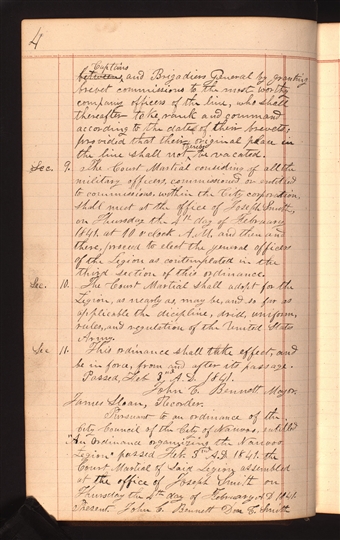 4
Captains
between, and Brigadiers General by granting
brevet commissions to the most worthy
company officers of the line, who shall
thereafter take rank and command
according to the date of their brevets,
provided that their original place in
the line shall not be vacated.
Sec. 9. The Court Martial consisting of all the
military officers, commissioned or entitled
to commissions, within the City corporation,
shall meet at the office of Joseph Smith,
on Thursday the 4th day of February
1841. at 10 o'clock A.M. and then and
there, proceed to elect the general officers
of the Legion as contemplated in the
third section of this ordinance.
Sec. 10. The Court Martial shall adopt for the
Legion, as nearly as, may be, and so far as
applicable the discipline, drill, uniform,
rules, and regulation of the United States
Army.
Sec 11. This ordinance shall take effect, and
be in force, from and after its passage.
Passed, Feb. 3rd A.D. 1841.
John C. Bennett Mayor,
James Sloan, Recorder.
Pursuant to an ordinance of the
City Council of the City of Nauvoo, entitled
"An Ordinance organizing the Nauvoo
Legion" passed Feb. 3rd A.D. 1841. the
Court Martial of Said Legion assembled
at the office of Joseph Smith on
Thursday the 4th day of February, A.D. 1841.
Present, John C. Bennett Don C. Smith